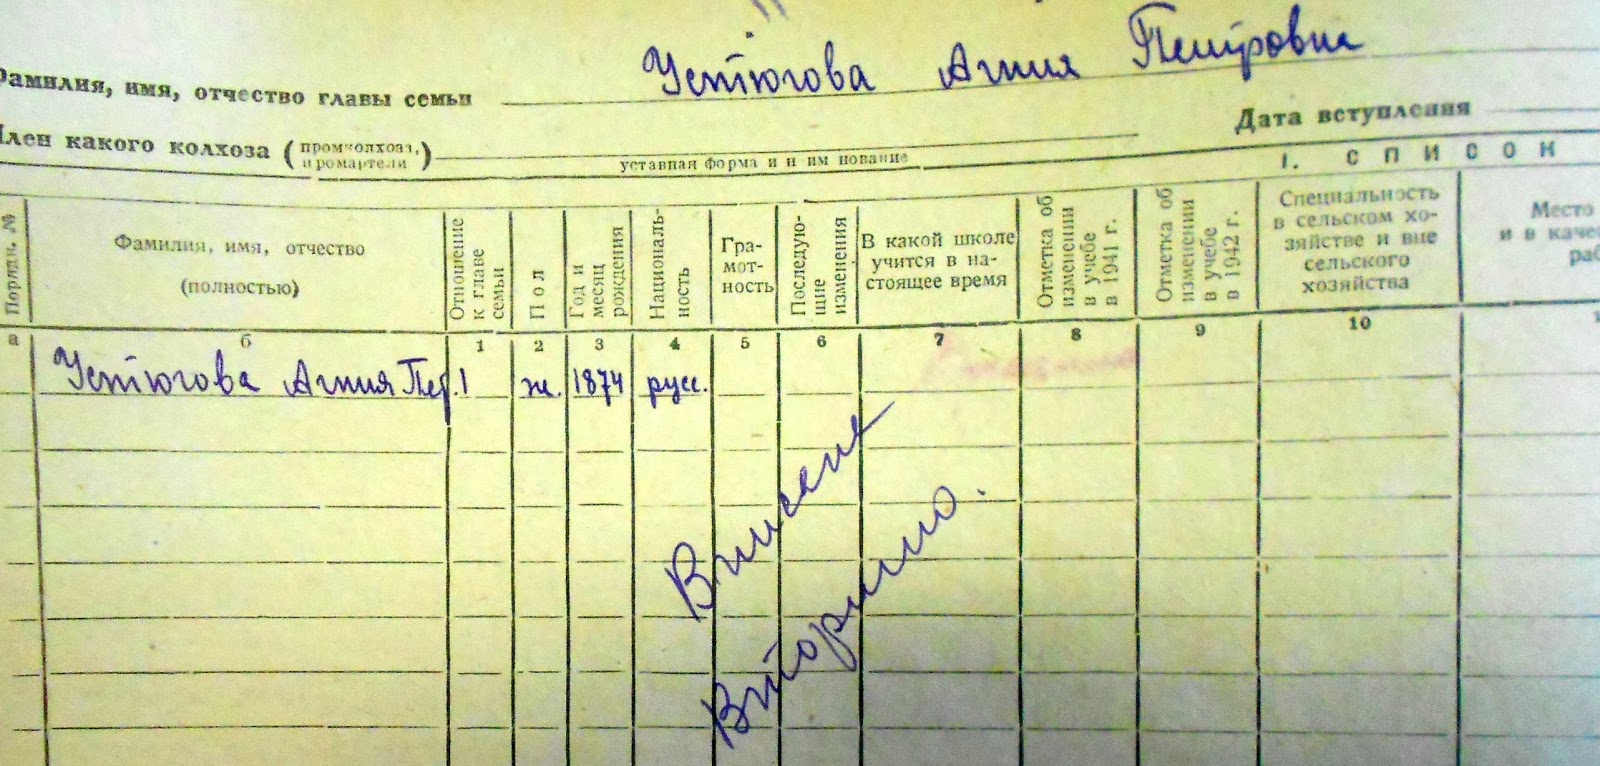 Устюгова Агния Петровна
Фамилия, имя, отчество главы семьи
Дата вступления
Член какого колхоза (промколхоза, промартели)
уставная форма и н им нование
I. СПИСОК
Порядк. №
Фамилия, имя, отчество
(полностью)
Отношение к главе семьи
Пол
Год и месяц рождения
Националь-
ность
Гра-
мот-
ность
Последую-
щие
изменения
В какой школе
учится в на-
стоящее время
Отметка об изменении в учебе в 1941 г.
Отметка об изменении в учебе в 1942 г.
Специальность
в сельском хо-
зяйстве и вне
сельского
хозяйства
Место
и в качес
раб
а б 1 2 3 4 5 6 7 8 9 10 1
Устюгова Агния Пет. 1 ж. 1874 русс.
Вписана
Вторично.